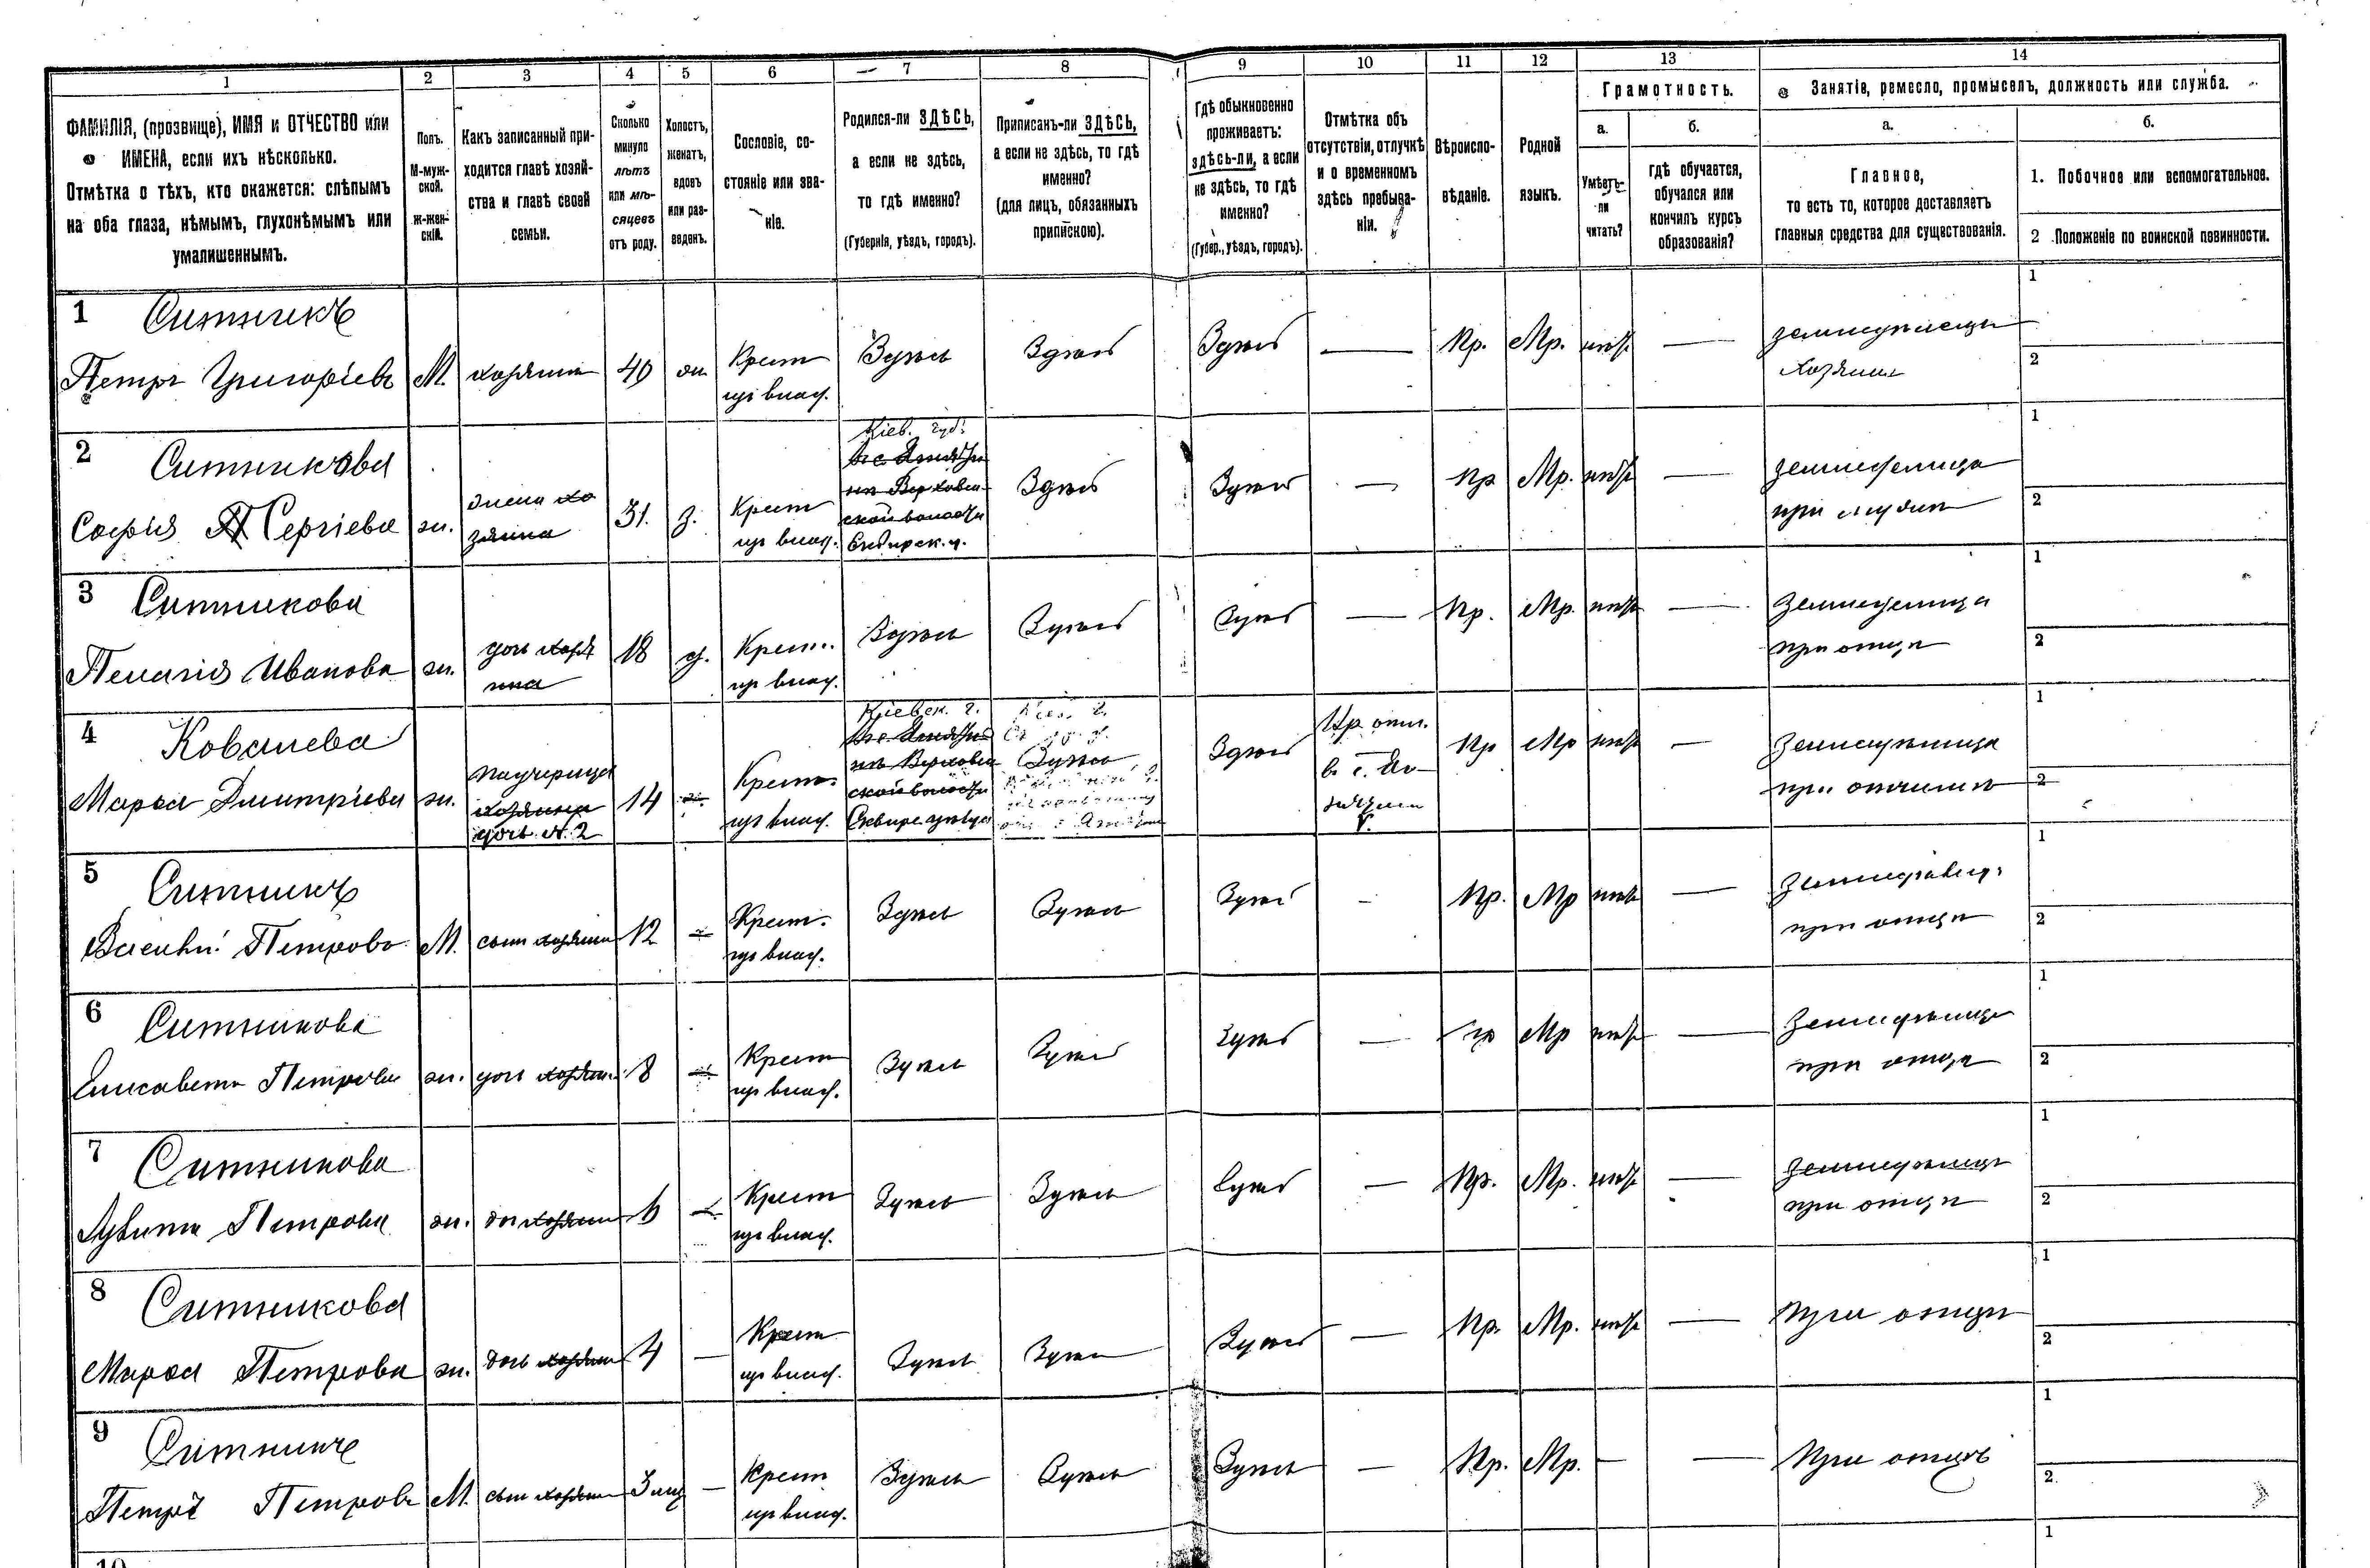 1 2 3 4 5 6 7 8 9 10 11 12 13 14
ФАМИЛІЯ, (прозвище), ИМЯ и ОТЧЕСТВО или
ИМЕНА, если ихъ нѣсколько.
Отмѣтка о тѣхъ, кто окажется: слѣпымъ
на оба глаза, нѣмымъ, глухонѣмымъ или
умалишеннымъ.
Полъ.
М-муж-
ской.
Ж-жен-
скій.
Какъ записанный при-
ходится главѣ хозяй-
ства и главѣ своей
семьи.
Сколько
минуло
лѣтъ
или мѣ-
сяцевъ
отъ роду.
Холостъ,
женатъ,
вдовъ
или раз-
веденъ.
Сословіе, со-
стояніе или зва-
ніе.
Родился-ли ЗДѢСЬ,
а если не здѣсь,
то гдѣ именно?
(Губернія, уѣздъ, городъ).
Приписанъ-ли ЗДѢСЬ,
а если не здѣсь, то гдѣ
именно?
(для лицъ, обязанныхъ
припискою).
Гдѣ обыкновенно
проживаетъ:
здѣсь-ли, а если
не здѣсь, то гдѣ
именно?
(Губер., уѣздъ, городъ).
Отмѣтка объ
отсутствіи, отлучкѣ
и о временномъ
здѣсь пребыва-
ніи.
Вѣроиспо-
вѣданіе.
Родной
языкъ.
Грамотность.
а.
Умѣетъ-
ли
читать?
б.
гдѣ обучается,
обучался или
кончилъ курсъ
образованія?
Занятіе, ремесло, промыселъ, должность или служба.
а.
Главное,
то есть то, которое доставляетъ
главныя средства для существованія.
б.
1. Побочное или вспомогательное.
2 Положеніе по воинской повинности.
1 Ситникъ
Петръ Григоріевъ М. хозяинъ 40 ж. Крест Здѣсь Здѣсь Здѣсь — Пр. Мр. нѣтъ — земледѣлецъ 1
изъ влад. хозяинъ 2
2 Ситникова
Софія Сергіева ж. жена хо 31. з. Крест Кіев. губ. Здѣсь Здѣсь — Пр Мр. нѣтъ — земледелица 1
зяина изъ влад. ской волости при мужѣ 2
3 Ситникова
Пелагія Иванова ж. дочь хозя 18 д. Крест. Здѣсь Здѣсь Здѣсь — Пр. Мр. нѣтъ — земледелица 1
ина изъ влад. при отцѣ 2
4 Ковалева
Марья Дмитріева ж. падчерица 14 Крест. Кіевск. г. Здѣсь Здѣсь Пр Мр нѣтъ — земледѣлица 1
хозяина изъ влад. ской волости при отчимѣ 2
дочь N. 2 Сквирс. уѣзда
5 Ситникъ
Василій Петровъ М. сынъ хозяина 12 — Крест. Здѣсь Здѣсь Здѣсь - Пр. Мр нѣтъ — 1
изъ влад. при отцѣ 2
6 Ситникова
Елисавета Петрова ж. дочь хозяина 8 — Крест Здѣсь Здѣсь Здѣсь — Пр Мр нѣтъ — земледѣлица 1
изъ влад. при отцѣ 2
7 Ситникова
Петрова ж. дочь хозяина 6 — Крест Здѣсь Здѣсь Здѣсь — Пр. Мр. нѣтъ — земледѣлица 1
изъ влад. при отцѣ 2
8 Ситникова
Марья Петрова ж. дочь хозяина 4 — Крест Здѣсь Здѣсь Здѣсь — Пр. Мр. нѣтъ — При отцѣ 1
изъ влад. 2
9 Ситникъ
Петръ Петровъ М. сынъ хозяина 3 мѣс — Крест Здѣсь Здѣсь Здѣсь — Пр. Мр. — — При отцѣ 1
изъ влад. 2
10 1